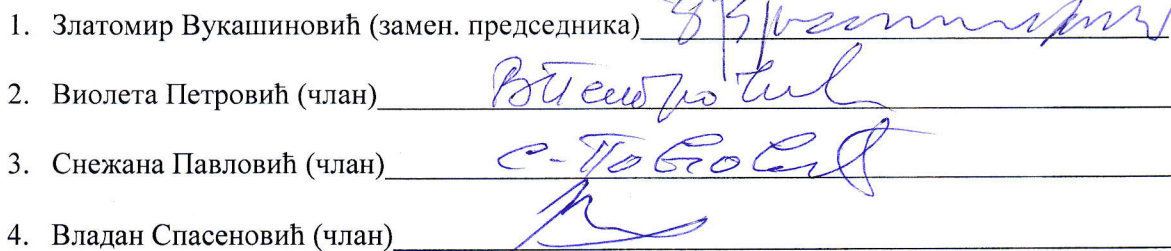 1. Златомир Вукашиновић (замен. председника)
2. Виолета Петровић (члан) ВПетровић
3. Снежана Павловић (члан) С-Павловић
4. Владан Спасеновић (члан)